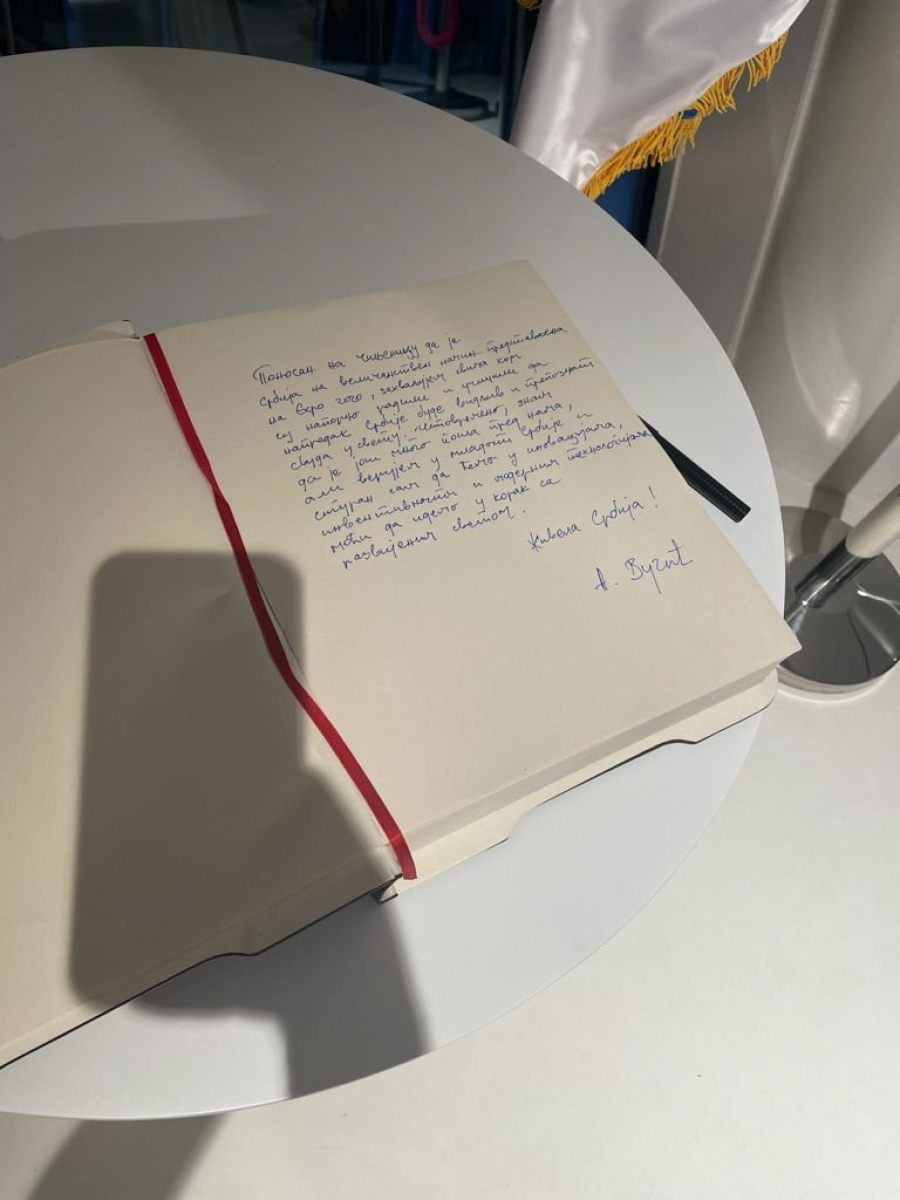 Поносан на чињеницу да је
Србија на величанствен начин представљена
на Експо 2020, захвалујем свима који
су напорно радили и учинили да
напредак Србије буде видљив и препознат
свуда у свету. Истовремено, знам
да је још много посла пред нама,
али верујем у младост Србије и
сигуран сам да ћемо у иновацијама,
инвентивности и модерним технологијама
моћи да идемо у корак са
развијеним светом.
Живела Србија!
А. Вучић